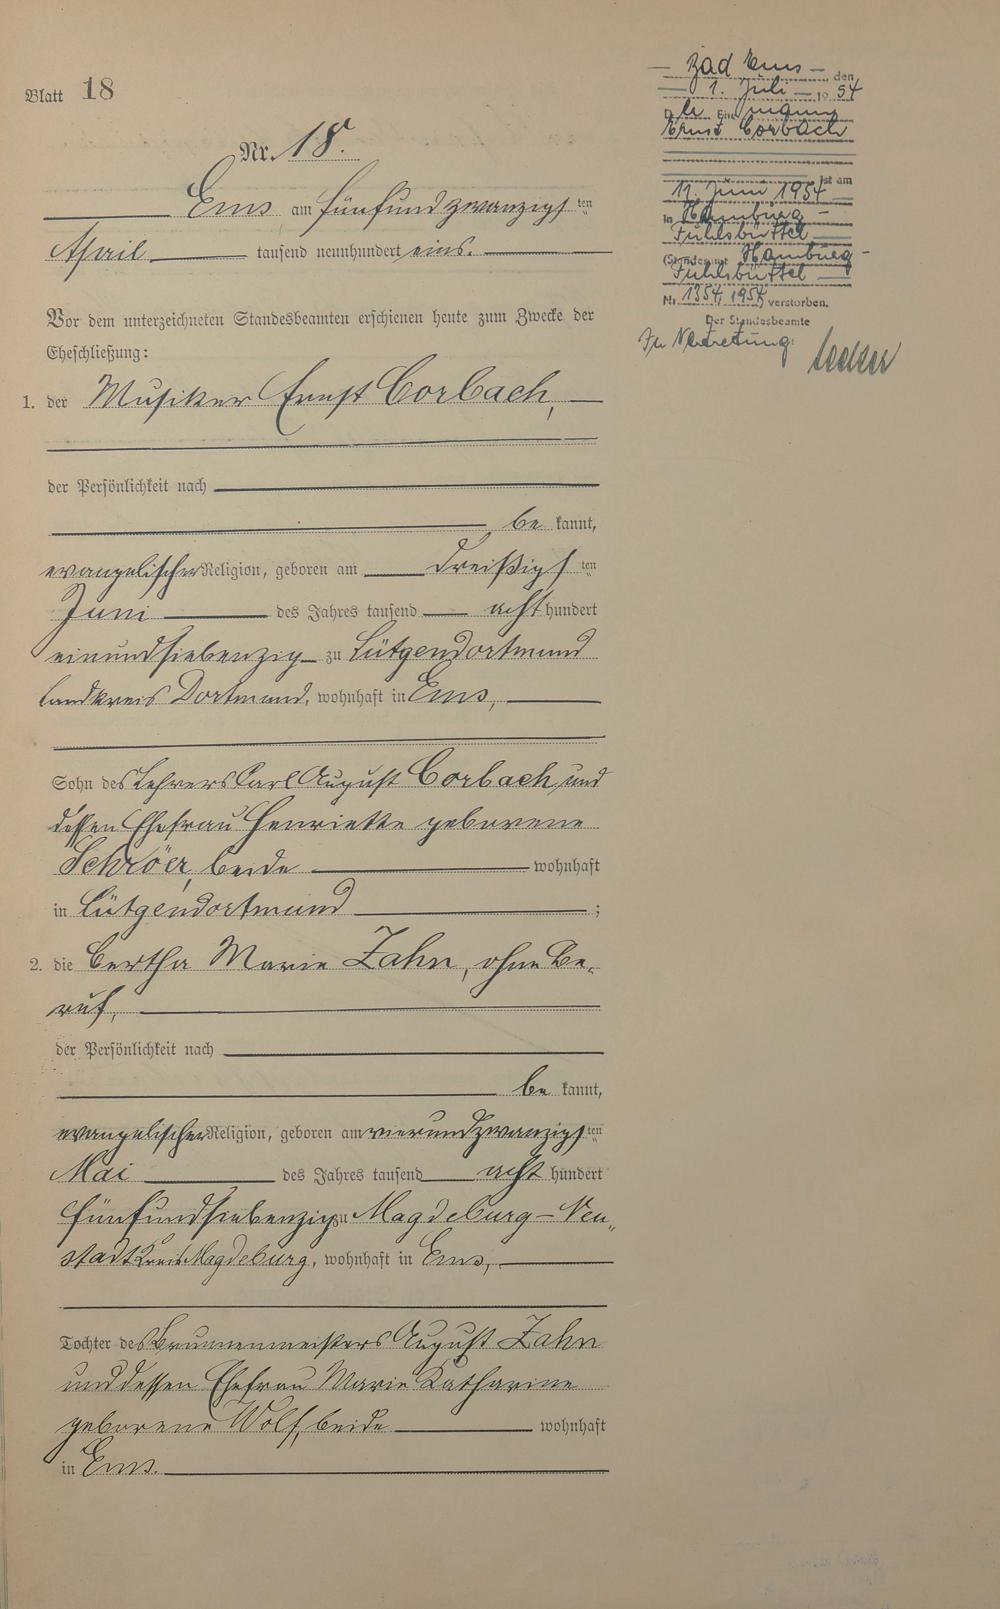 Blatt 18
Nr. 18.
Ems am fünfundzwanzigsten
April tausend neunhundert eins.
Vor dem unterzeichneten Standesbeamten erschienen heute zum Zwecke der
Eheschließung:
1. der Musiker Ernst Corbach,
der Persönlichkeit nach
be kannt,
evangelischer Religion, geboren am dreißigsten
Juni des Jahres tausend acht hundert
einundsiebenzig zu Lütgendortmund
Landkreis Dortmund, wohnhaft in Ems,
Sohn des Lehrers Carl August Corbach und
dessen Ehefrau Henriette geborene
Schröer, beide wohnhaft
in Lütgendortmund ;
2. die Bertha Marie Zahn, ohne Be-
ruf,
der Persönlichkeit nach
be kannt,
evangelischer Religion, geboren am vierundzwanzigsten
Mai des Jahres tausend acht hundert
fünfundsiebenzig zu Magdeburg-Neu-
stadt Kreis Magdeburg, wohnhaft in Ems,
Tochter des Brunnenmeisters August Zahn
und dessen Ehefrau Marie Katharine
geborene Wolf, beide wohnhaft
in Ems.
Bad Ems, den
1. Juli 1954
Ernst Corbach
ist am
11. Juni 1954
in Hamburg-
Fuhlsbüttel
(Standesamt Hamburg-
Fuhlsbüttel
Nr 1354/1954 verstorben.
Der Standesbeamte
In Vertretung: